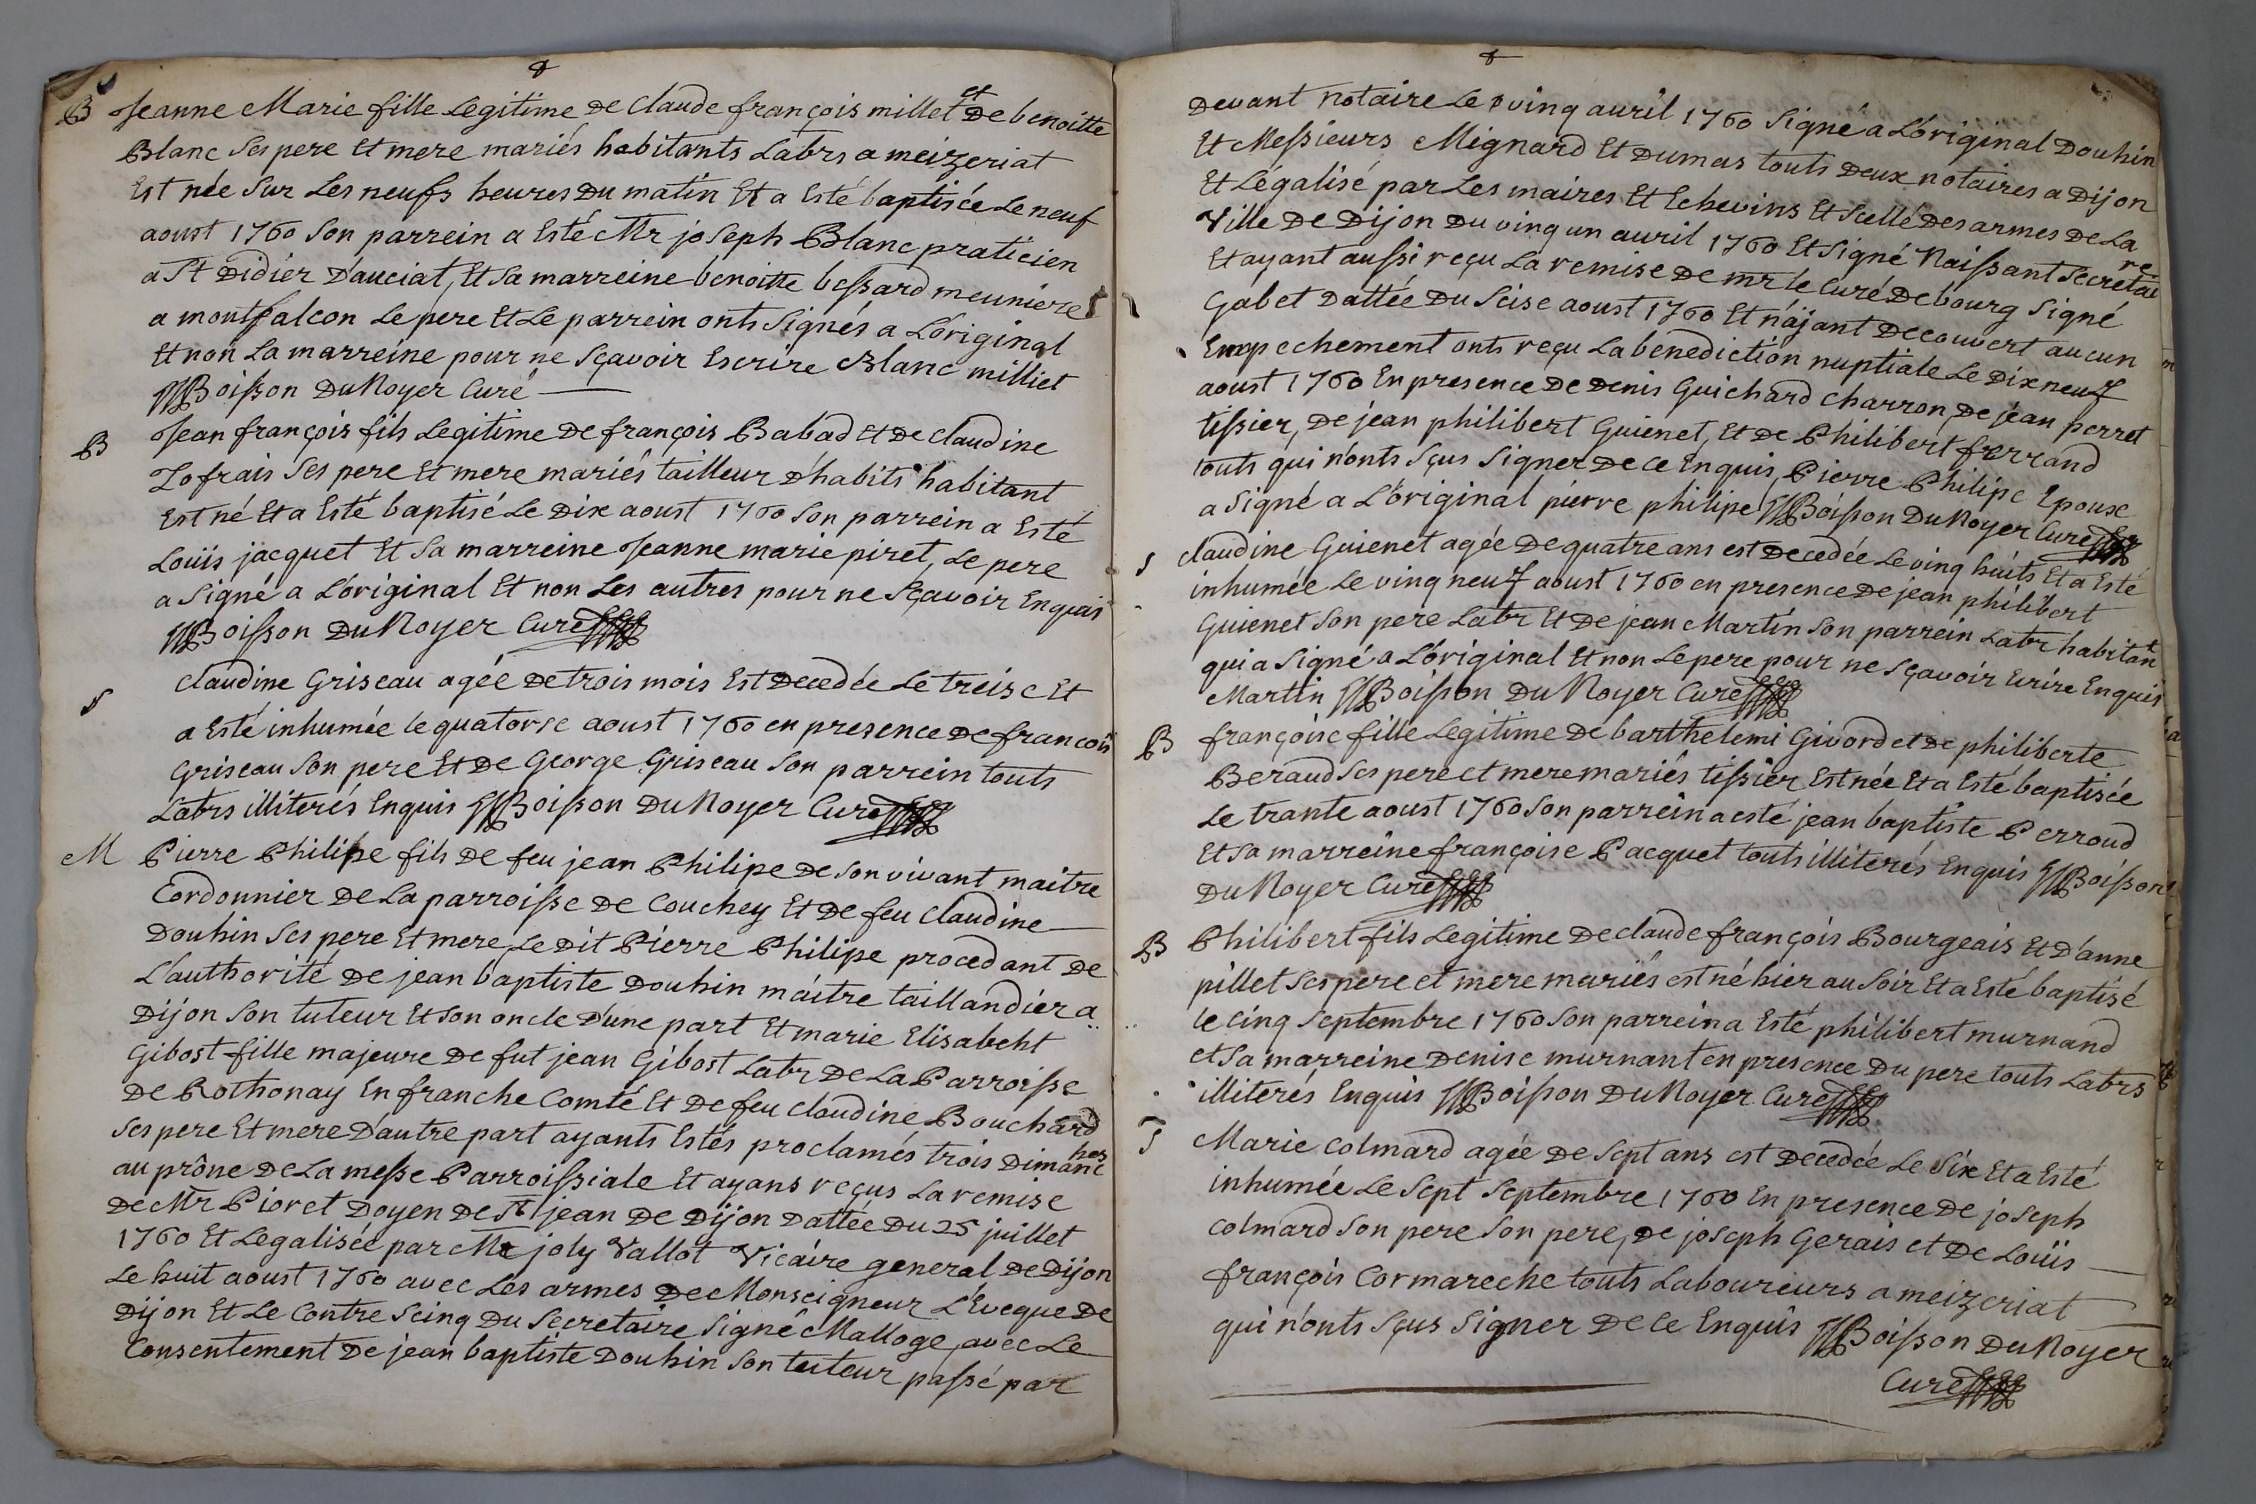 B Jeanne Marie fille Legitime De Claude françois millet et De benoitte
Blanc Ses pere Et mere mariés habitants Labrs a meizeriat
Est née Sur Les neufs heures Du matin Et a Esté baptisée Le neuf
aoust 1760 Son parrein a Esté Mr joseph Blanc praticien
a St Didier D'auciat, Et Sa marreine benoitte bessard meuniere
a montfalcon Le pere Et Le parrein onts Signés a L'original
Et non La marreine pour ne Sçavoir Escrire Blanc milliet
Boisson DuNoyer Curé
B Jean françois fils Legitime De françois Babad Et De Claudine
Ses pere Et mere mariés tailleur D'habits habitant
Est né Et a Esté baptisé Le Dix aoust 1760 Son parrein a Esté
Louis jacquet Et Sa marreine Jeanne marie piret, Le pere
a Signé a L'original Et non Les autres pour ne Sçavoir Enquis
Boisson DuNoyer Curé
S Claudine Griseau agée De trois mois Est Decedée Le treise Et
a Esté inhumée le quatorse aoust 1760 en presence De francois
Griseau Son pere Et De George Griseau Son parrein touts
Labrs illiterés Enquis Boisson DuNoyer Curé
M Pierre Philipe fils De feu jean Philipe De Son vivant maitre
Cordonnier De La parroisse De Couchey Et De feu Claudine
Douhin Ses pere Et mere, Le Dit Pierre Philipe procedant De
L'authorité De jean baptiste Douhin maitre taillandier a
Dijon Son tuteur Et Son oncle D'une part Et marie Elisabeht
Gibost fille majeure De fut jean Gibost Labr De La Parroisse
De Rothonay En franche Comté Et De feu Claudine Bouchard
Ses pere Et mere D'autre part ayants Estés proclamés trois Dimanches
au prône De La messe Parroissiale Et ayans reçus La remise
De Mr Pioret Doyen De St jean De Dijon Dattée Du 25 juillet
1760 Et Legalisée par Mr joly Vallot Vicaire general De Dijon
Le huit aoust 1760 avec Les armes De Monseigneur L'Eveque De
Dijon Et Le Contre Seing Du Secretaire Signé Malloge, avec Le
Consentement De jean baptiste Douhin Son tuteur passé par
Devant notaire Le vinq auril 1760 Signé a L'original Douhin
Et Messieurs Mignard Et Dumas touts Deux notaires a Dijon
Et Légalisé par Les maires Et Echevins Et Scellé Des armes De La
Ville De Dijon Du vinq un auril 1760 Et Signé Naissant Secretaire
Et ayant aussi reçu La remise De mr le Curé De bourg Signé
Gabet Dattée Du Seise aoust 1760 Et n'ajant Decouvert aucun
Empechement onts reçu La benediction nuptiale Le Dixneuf
aoust 1760 En presence De Denis Guichard Charron, De jean perret
tissier, De jean philibert Guienet, Et De Philibert ferrand
touts qui n'onts Sçus Signer De ce Enquis, Pierre Philipe Epoux
a Signé a L'original pierre philipe Boisson DuNoyer Curé
S Claudine Guienet agée De quatre ans est Decedée Le vinq huits Et a Esté
inhumée Le vinq neuf aoust 1760 en presence De jean philibert
Guienet Son pere Labr Et De jean Martin Son parrein Labr habitant
qui a Signé a L'original Et non Le pere pour ne Sçavoir Ecrire Enquis
Martin Boisson DuNoyer Curé
B françoise fille Legitime De barthelemi Givord et De philiberte
Beraud Ses pere et mere mariés tissier Est née Et a Esté baptisée
Le trante aoust 1760 Son parrein a esté jean baptiste Perroud
Et Sa marreine françoise Pacquet touts illiterés Enquis Boisson
DuNoyer Curé
B Philibert fils Legitime De claude françois Bourgeais Et D'anne
pillet Ses pere et mere mariés est né hier au Soir Et a Esté baptisé
le cinq Septembre 1760 Son parrein a Esté philibert murnand
et Sa marreine Denise murnant en presence Du pere touts Labrs
illiterés Enquis Boisson DuNoyer Curé
S Marie Colmard agée De Sept ans est Decedée Le Six Et a Esté
inhumée Le Sept Septembre 1760 En presence De joseph
Colmard Son pere Son pere, De joseph Gerais et De Louis
françois Cormareche touts Laboureurs a meizeriat
qui n'onts Sçus Signer De ce Enquis Boisson DuNoyer
Curé